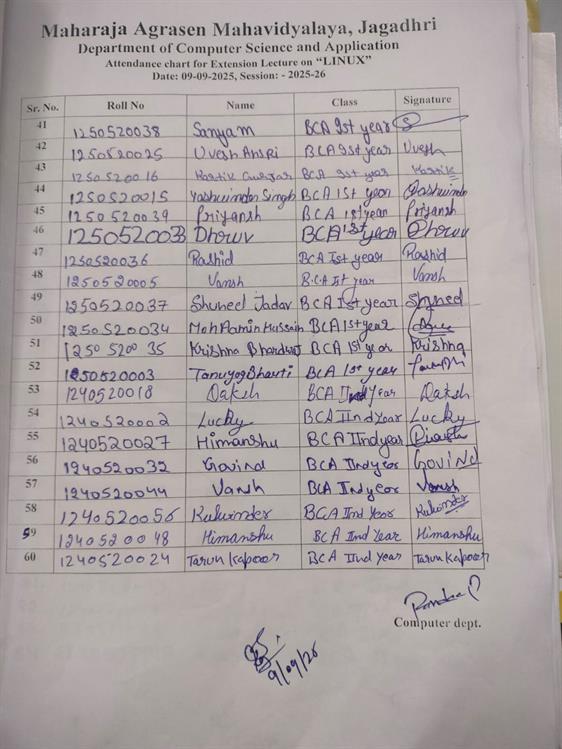 Maharaja Agrasen Mahavidyalaya, Jagadhri
Department of Computer Science and Application
Attendance chart for Extension Lecture on “LINUX”
Date: 09-09-2025, Session: - 2025-26
Sr. No. Roll No Name Class Signature
41 1250520038 Sanyam BCA Ist year S
42 1250520025 Uvesh Ansri BCA Ist year Uvesh
43 1250520016 Kartik Gurjar BCA Ist year Kartik
44 1250520015 Yashwinder Singh BCA Ist year Yashwinder
45 1250520039 Priyansh BCA Ist year Priyansh
46 1250520033 Dhruv BCA Ist year Dhruv
47 1250520036 Rashid BCA Ist year Rashid
48 1250520005 Vansh B.C.A Ist year Vansh
49 1250520037 Shuneel Jadav BCA Ist year
50 1250520034 Moh Ramin Hussain BCA Ist year
51 1250520035 Krishna Bhardwaj BCA Ist year Krishna
52 1250520003 BCA Ist year
53 1240520018 Daksh BCA IInd Year Daksh
54 1240520002 Lucky BCA IInd Year Lucky
55 1240520027 Himanshu BCA IInd year
56 1240520032 Govind BCA IInd year Govind
57 1240520044 Vansh BCA IInd year Vansh
58 1240520056 Kulwinder BCA IInd Year Kulwinder
59 1240520048 Himanshu BCA IInd Year Himanshu
60 1240520024 Tarun Kapoor BCA IInd Year Tarun Kapoor
Computer dept.
9/09/25